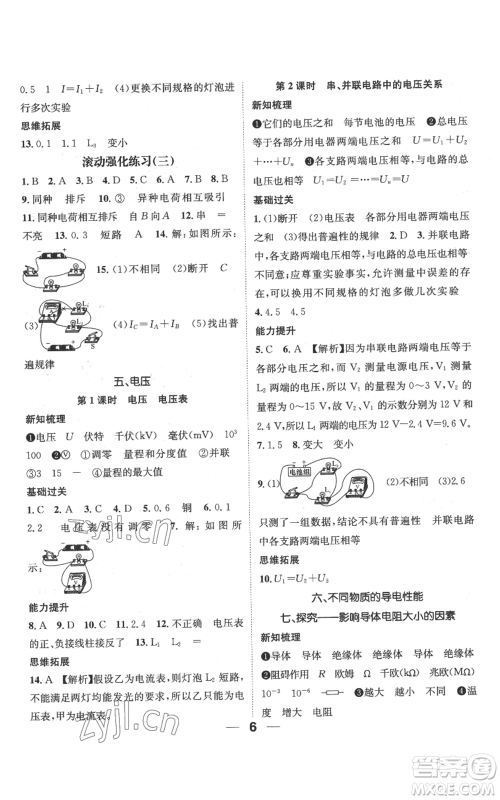 0.5 1 I=I₁+I₂ (4)更换不同规格的灯泡进
行多次实验
思维拓展
13.0.1 1.1 L₂ 变小
滚动强化练习(三)
1.B 2.A 3.A 4.D 5.C 6.A 7.B 8.B
9.同种 排斥 10.③ 异种电荷相互吸引
11.同种电荷相互排斥 自B向A 12.串 =
不亮 13.0.3 短路 A 14.解:如图所示:
15.(1)不相同 (2)断开 C
(3) (4)I_C=I_A+I_B (5)找出普
遍规律
五、电压
第1课时 电压 电压表
新知梳理
❶电压 U 伏特 千伏(kV) 毫伏(mV) 10³
100 ❷Ⓥ ①调零 量程和分度值 ②并联
③3 15 - ④量程的最大值
基础过关
1.C 2.A 3.B 4.A 5.B 铜 6.0.1
2.2 电压表没有调零 7.解:如图所
示:
能力提升
8.D 9.B 10.A 11.2 12.不正确 电压表
的正、负接线柱接反 13.1.5
思维拓展
14.A 【解析】假设乙为电流表,则L₂短路,不
能满足两灯均能发光,所以乙应为
电压表,甲为电流表。
第2课时 串、并联电路中的电压关系
新知梳理
❶它们的电压之和 每节电池的电压 ❷总电压
等于各部分用电器两端电压之和 U=U₁+U₂
+…+Uₙ 各支路两端电压 U₁=U₂=…=Uₙ
基础过关
1.(1)断开 (2)电压表 各部分用电器两端电
压之和 (3)得出普遍性的规律 2.D 3.并联中,
各支路两端电压相等,不同组测出的电压可能
不相等;应尊重实验事实,允许测量中误差的存
在,并且更换不同规格的灯泡多做几次实验
4.4.5 4.5
能力提升
5.C 6.A 【解析】因为串联电路中总电压等于
各部分电压之和,所以V₁测量电源电压,V₂测量
L₂两端的电压,V₁的电压大于V₂的电压,故V₁的
量程为0～15V,V₂的示数分别为12V和
2.4V,所以L₁两端的电压为9.6V。
7.1.5 1.5 8.变大 变小
9.(1) (2)不相同 (3)
只测了一组数据,没有普遍性 并联电路
中各支路两端电压相等
思维拓展
10.U=U₁+U₂+U₃
六、不同物质的导电性能
七、探究——影响导体电阻大小的因素
新知梳理
❶导体 导体 绝缘体 绝缘体 绝缘体
❷阻碍作用 R 欧姆 Ω 千欧(kΩ) 兆欧(MΩ)
10⁻³ 10⁻⁶ 越大 越小 ❸
温度 增大 电阻
6
zyjl.cn